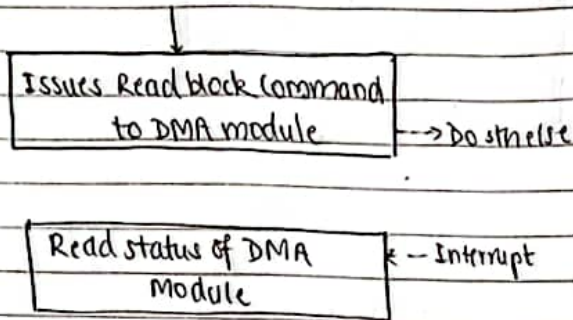 Issues Read block Command
to DMA module
Do sth else
Read status of DMA
Module
Interrupt